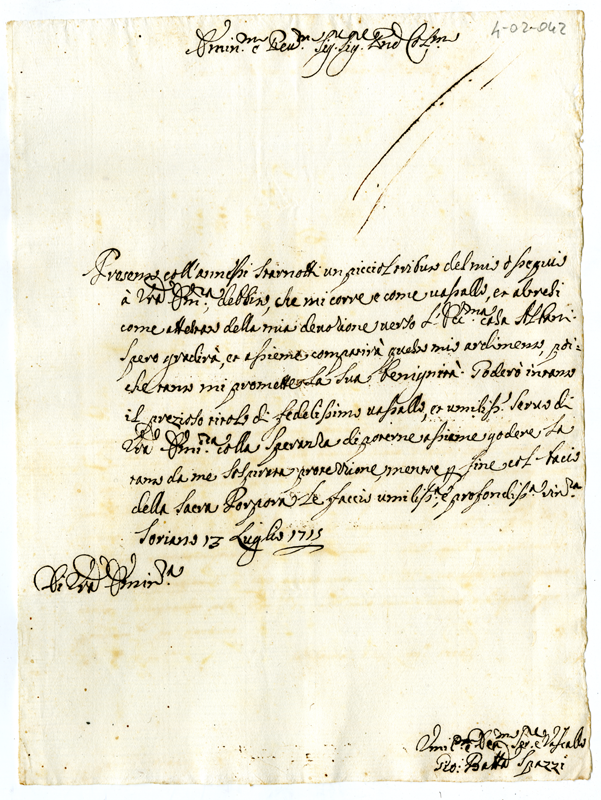 4-02-042
Emin.mo e Rev.mo Sig. Sig. P.rod Col.mo
Presento coll'annessi Starnotti un picciol tributo del mio ossequio
à V.ra Em.za, debbio, che mi corre e come vassallo, et
come della mia devozione verso l'Ecc.ma casa Alban-
spero gradirà, et assieme compatirà questo mio ardimento, poi-
che tanto mi promette la sua benignità. Goderò intanto
il prezioso titolo di fedelissimo vassallo, et umiliss.o servo di
V.ra Emin.za colla speranza di poterne assieme godere la
tanto da me sospirata protezzione mentre p fine col bacio
della Sacra Porpora le faccio umiliss.a, e profondiss.a river.a
Soriano 13 Luglio 1715
Di V.ra Emin.za
Umil.o e Dev.mo Ser.e e Vassallo
Gio: Batta Spazzi